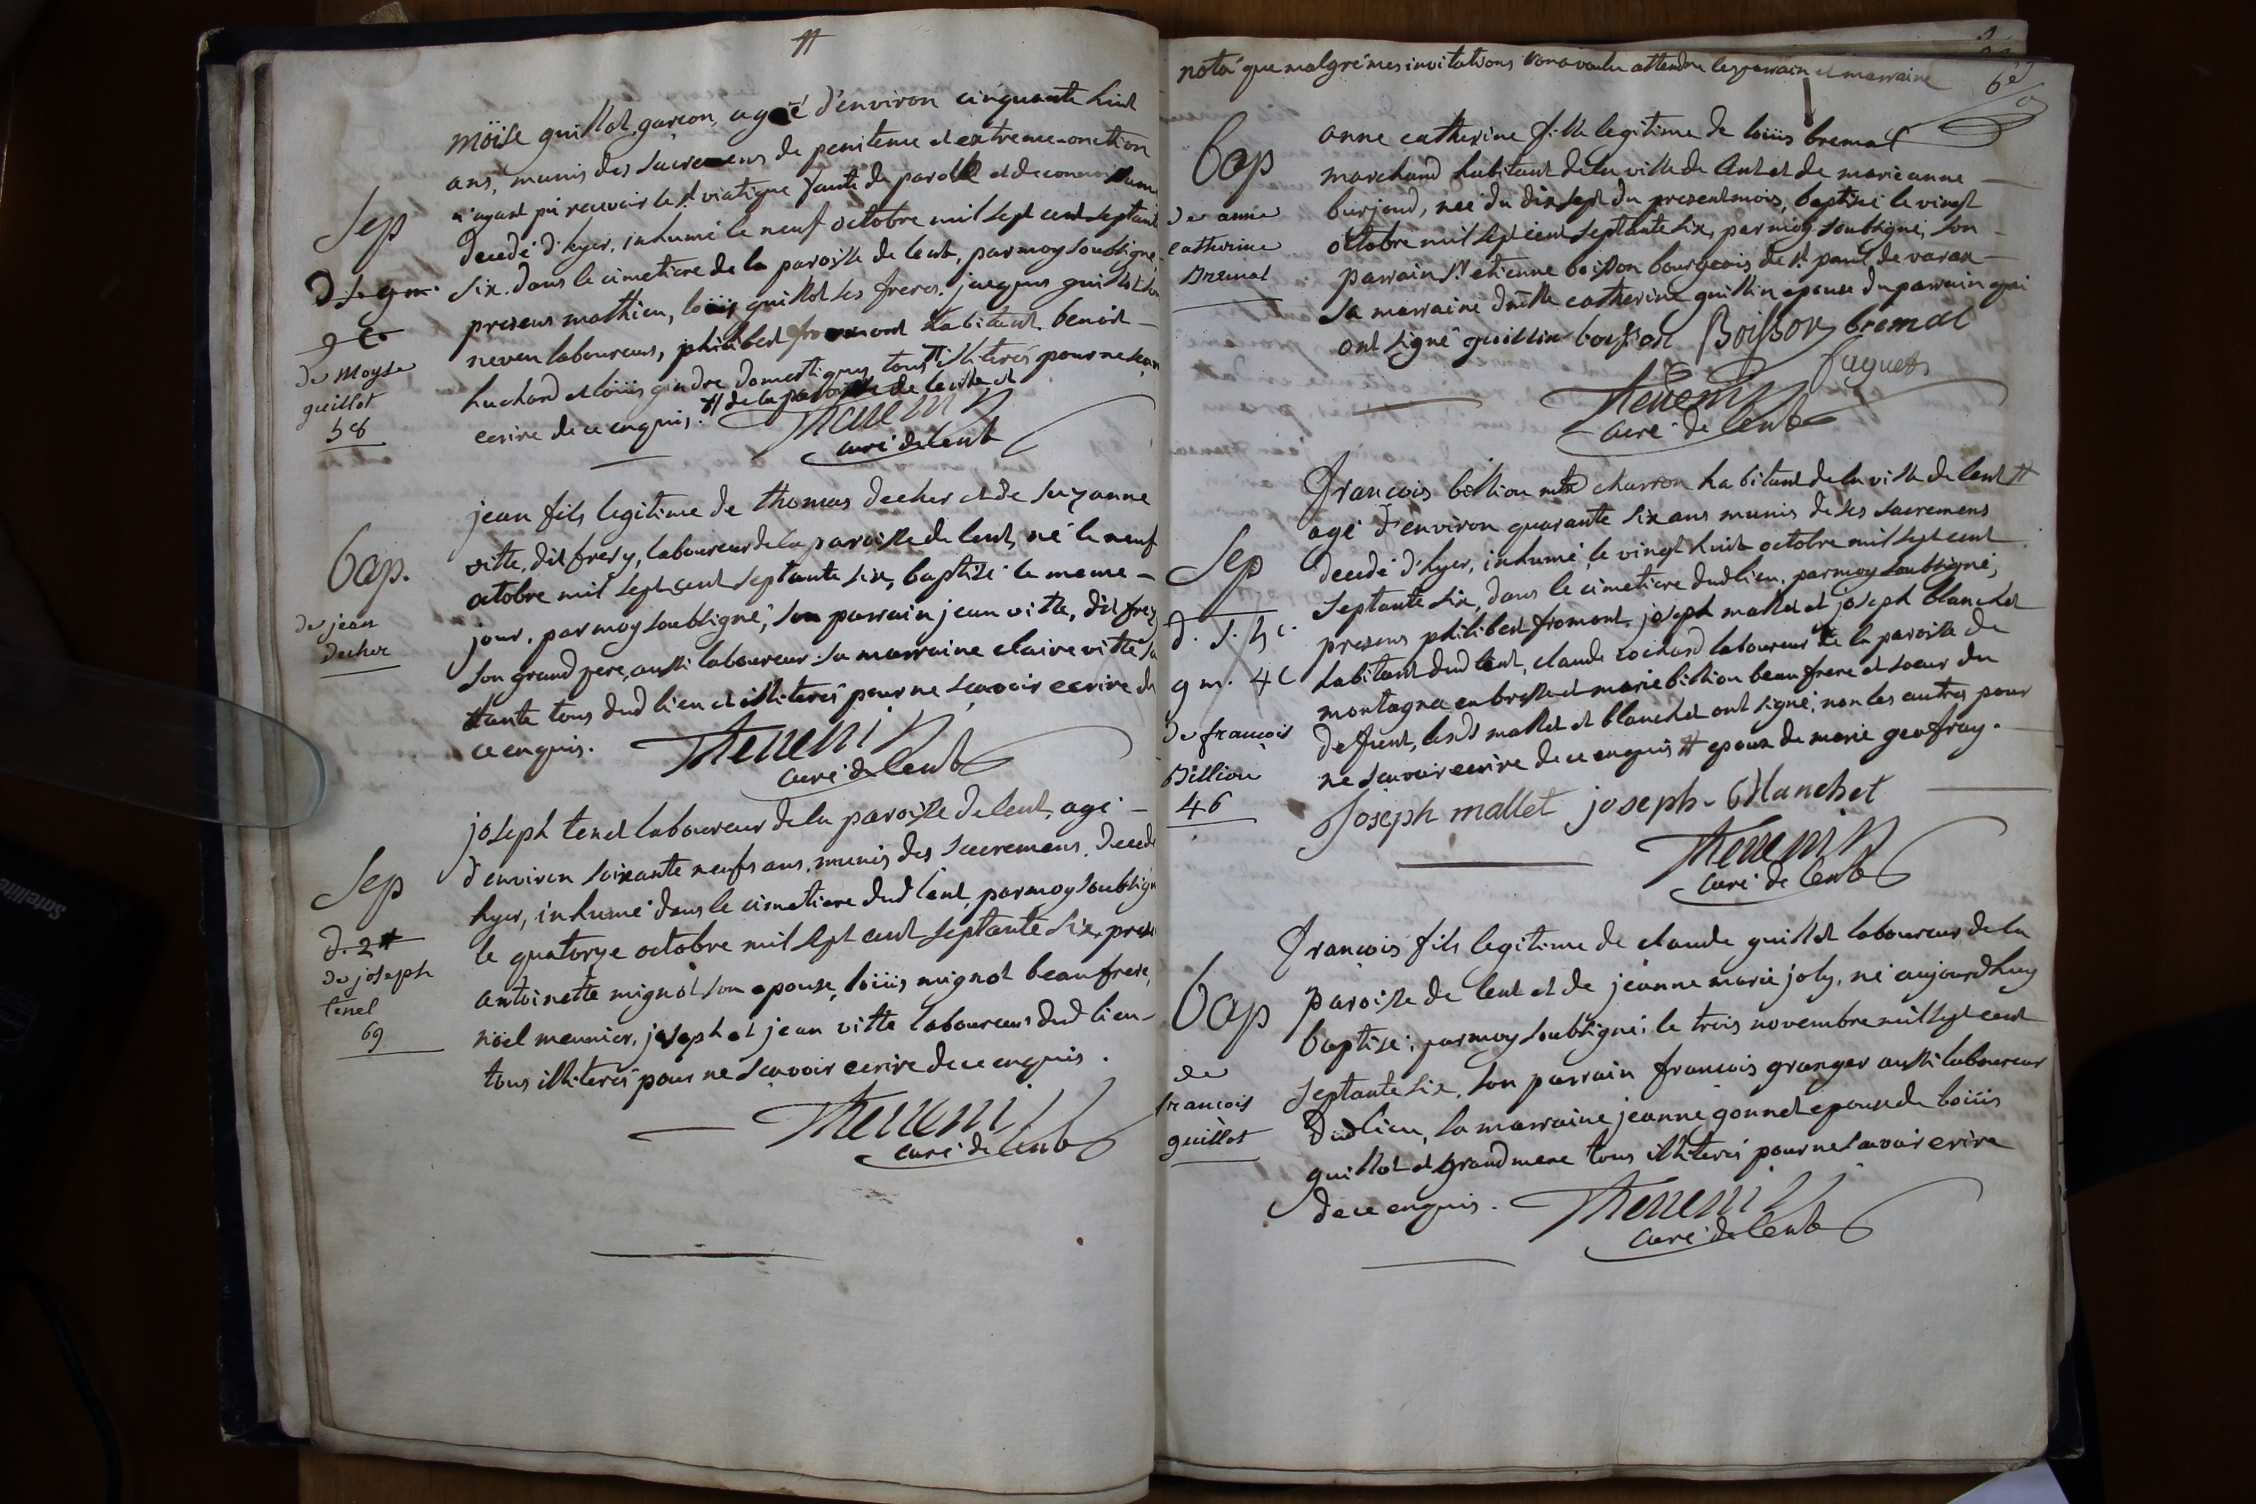 moïse guillot, garçon, agéé d'environ cinquante huit
ans, munis des sacremens de penitence et extreme onction
n'ayant pû recevoir le st viatique faute de parolle et de connoissance
Sep
decedé d'hyer, inhumé le neuf octobre mil sept cent septante
six. dans le cimetiere de la paroisse de lent, par moy soubsigné,
presens mathieu, loüis guillot ses freres. jacques guillot son
neveu laboureurs, philibert fromont habitant. benoit
de Moyse
guillot
58
huchard et loüis gindre domestiques tous illiterés pour ne sçavoir
ecrire de ce enquis. # de la paroisse de lent et
Thevenin
curé de Lent
jean fils legitime de thomas decher et de suzanne
vitte, dit fresy, laboureur de la paroisse de lent, né le neuf
Bap.
octobre mil sept cent septante six, baptisé le meme
de jean
decher
jour, par moy soubsigné, son parrain jean vitte, dit frezy
son grand pere, aussi laboureur. sa marraine claire vitte sa
ttante tous dud lieu et illiterés pour ne sçavoir ecrire de
ce enquis.
Thevenin
curé de Lent
joseph tenet laboureur de la paroisse de lent, agé
Sep
d'environ soixante neufs ans, munis des sacremens. decedé
hyer, inhumé dans le cimetiere dud lent, par moy soubsigné
d. 2 #
de joseph
tenel
69
le quatorze octobre mil sept cent septante six, presens
antoinette mignot son epouse, loüis mignot beaufrere,
nöel meunier, joseph et jean vitte laboureurs dud lieu
tous illiterés pour ne sçavoir ecrire de ce enquis.
Thevenin
curé de Lent
nota que malgré mes invitations on a voulu attendre les parrain et marraine
6e
Bap
de anne
catherine
Bremal
anne catherine fille legitime de loüis bremal
marchand habitant de la ville de lent et de marie anne
burjoud, neé du dix sept du present mois, baptisé le vingt
octobre mil sept cent septante six, par moy soubsigné, son
parrain sr etienne boisson bourgeois de st paul de varax
sa marraine dlle catherine guillin epouse du parrain qui
ont signé guillin boisson Boisson bremal
faguet
Thevenin
curé de Lent
françois billion mtre charron habitant de la ville de lent #
agé d'environ quarante six ans munis de ses sacremens
Sep
decedé d'hyer, inhumé, le vingt huit octobre mil sept cent
septante six, dans le cimetiere dud lieu. par moy soubsigné,
d. s. h c.
gm. 4 c
presens philibert fromont. joseph mallet et joseph blanchet
habitant dud lent, claude cochard laboureur de la paroisse de
montagna en bresse et marie billion beaufrere et soeur du
de françois
Billion
46
defunt, lesd mallet et blanchet ont signé, non les autres pour
ne sçavoir ecrire de ce enquis # epoux de marie geofray.
Joseph mallet joseph Blanchet
Thevenin
curé de Lent
françois fils legitime de claude guillot laboureur de la
Bap
paroisse de lent et de jeanne marie joly, né aujourd'huy
baptisé, par moy soubsigné, le trois novembre mil sept cent
de
francois
guillot
septante six, son parrain francois granger aussi laboureur
dudlieu, la marraine jeanne gonnet epouse de loüis
guillot et grandmere tous illiterés pour ne sçavoir ecrire
de ce enquis.
Thevenin
curé de Lent